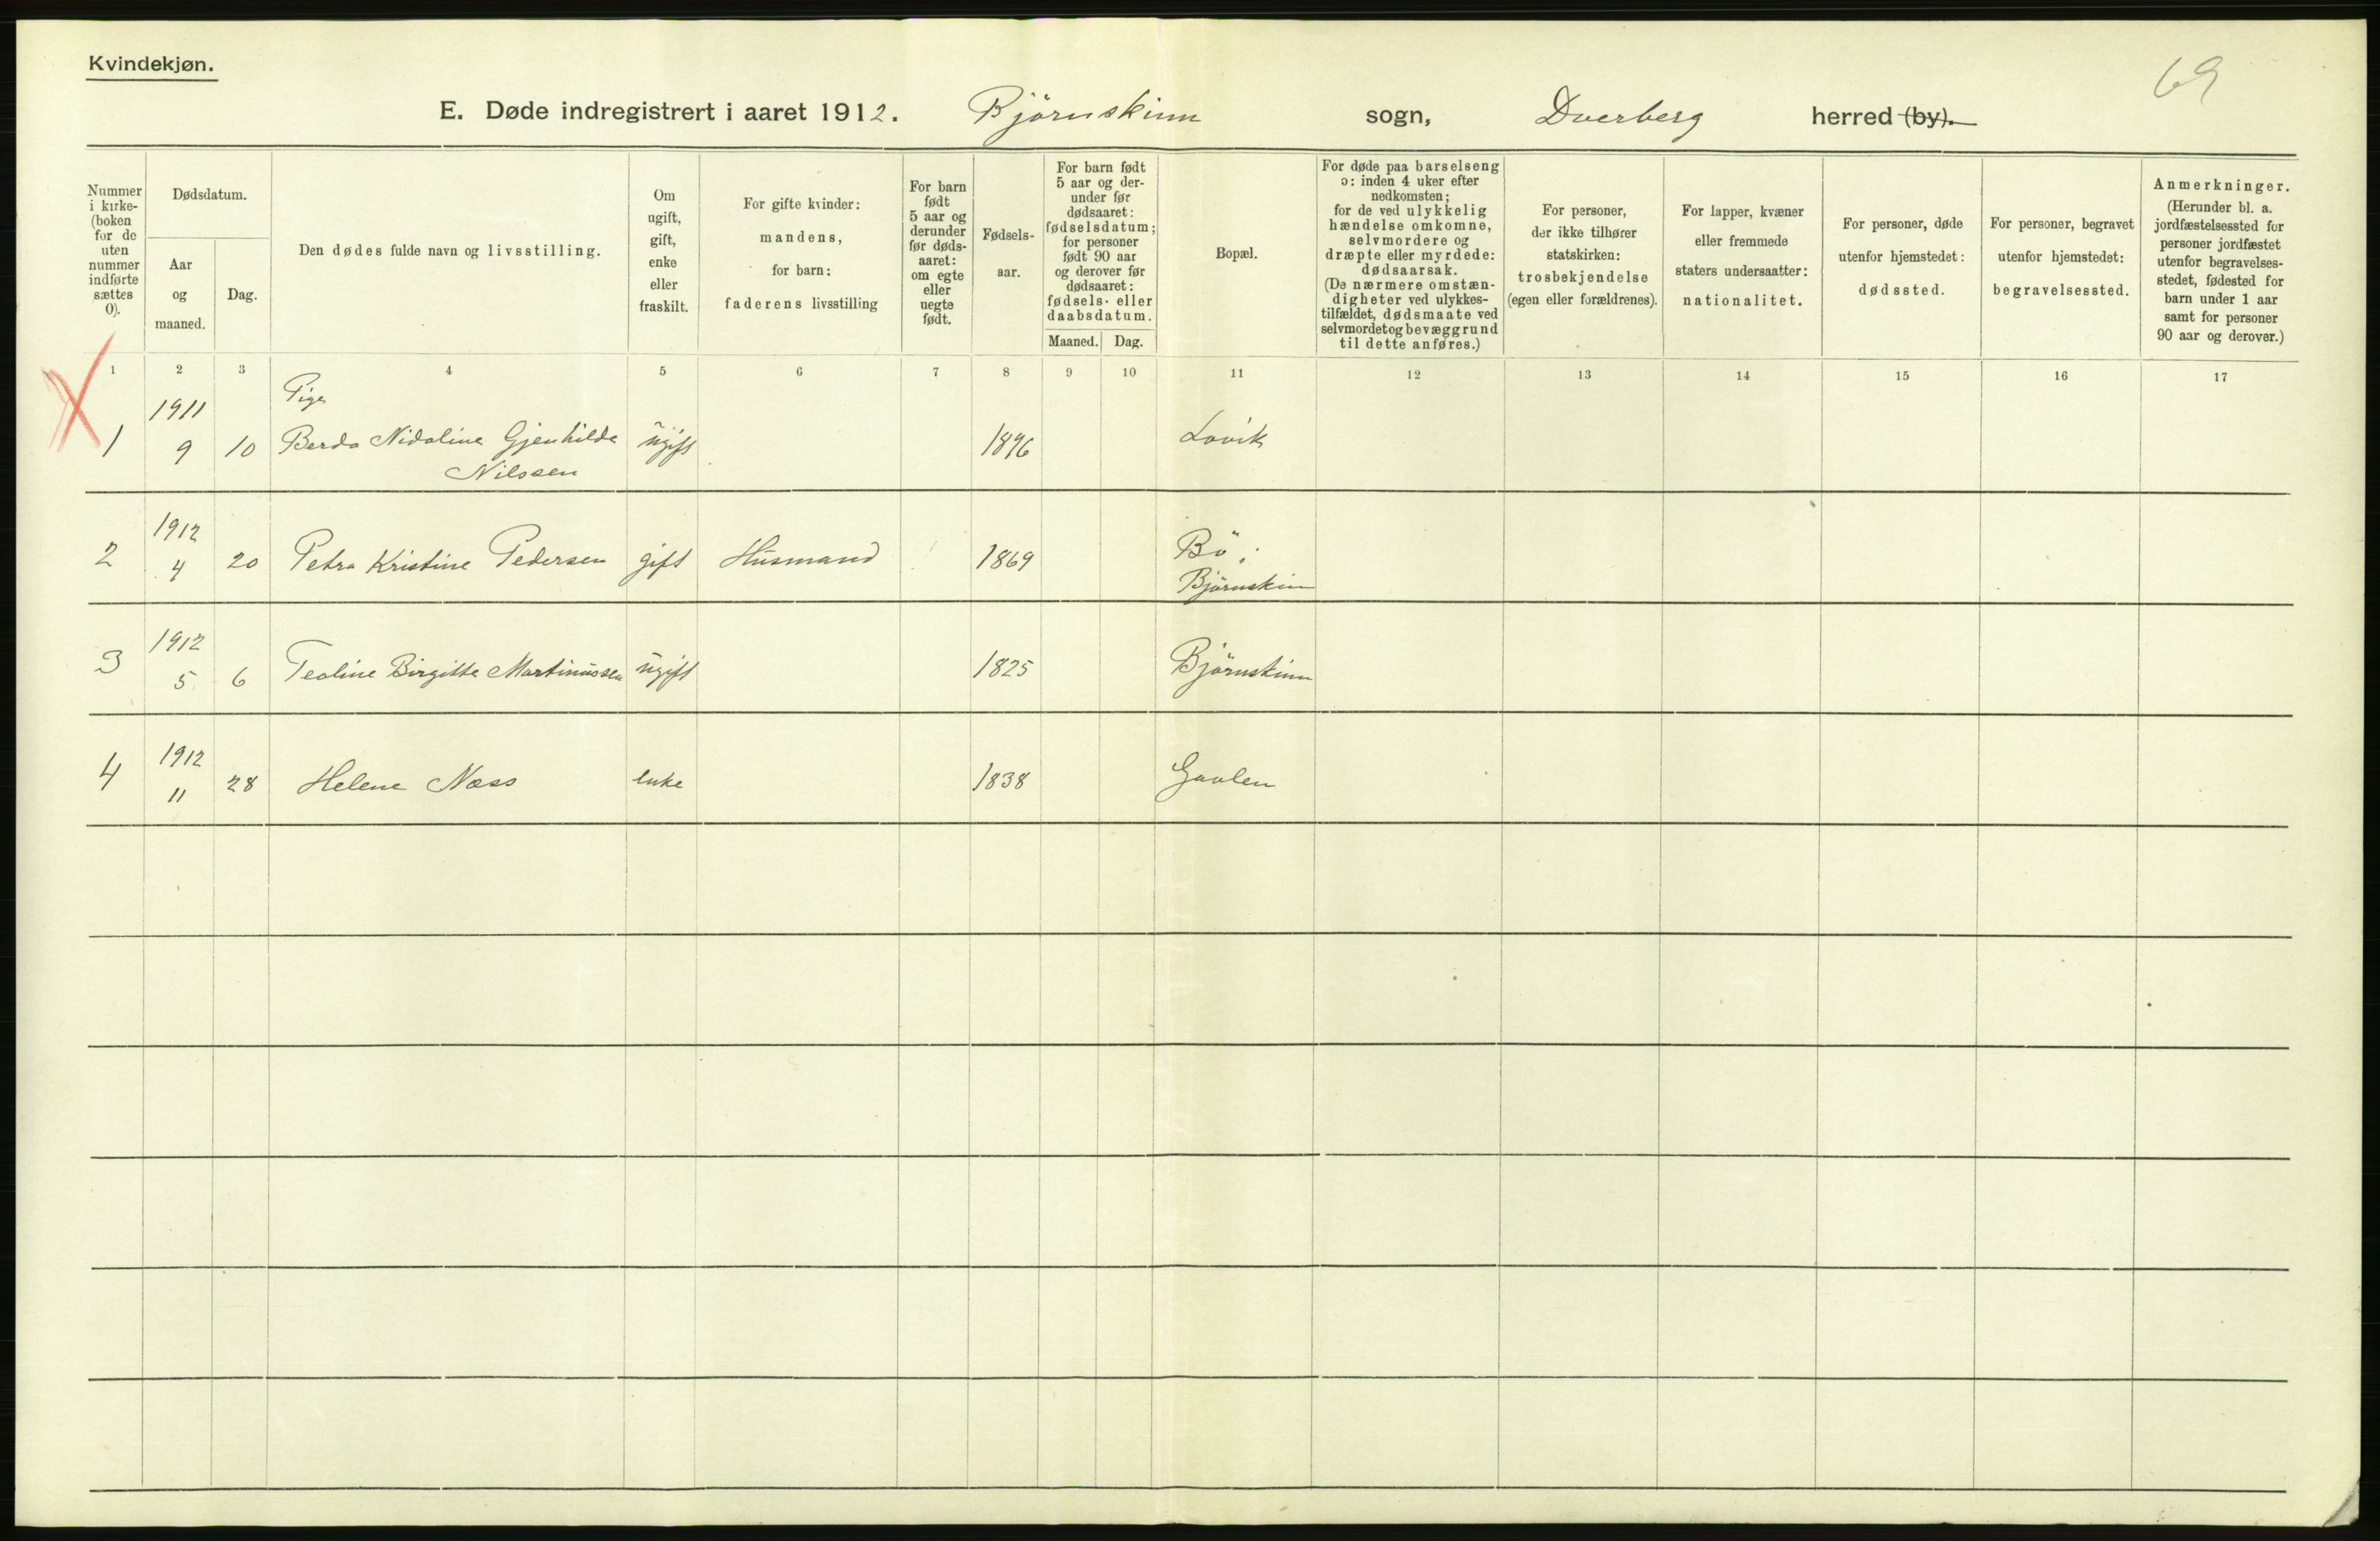 Kvindekjøn.
69
E. Døde indregistrert i aaret 1912. Björnskinn sogn, Dverberg herred (by).
Nummer i kirke- (boken for de uten nummer indførte sættes 0).
Dødsdatum.
Aar og maaned.
Dag.
Den dødes fulde navn og livsstilling.
Om ugift, gift, enke eller fraskilt.
For gifte kvinder: mandens, for barn: faderens livsstilling
For barn født 5 aar og derunder før døds- aaret: om egte eller uegte født.
Fødsels- aar.
For barn født 5 aar og der- under før dødsaaret: fødselsdatum; for personer født 90 aar og derover før dødsaaret: fødsels- eller daabsdatum.
Maaned. Dag.
Bopæl.
For døde paa barselseng ɔ: inden 4 uker efter nedkomsten; for de ved ulykkelig hændelse omkomne, selvmordere og dræpte eller myrdede: dødsaarsak. (De nærmere omstæn- digheter ved ulykkes- tilfældet, dødsmaate ved selvmord et og bevæggrund til dette anføres.)
For personer, der ikke tilhører statskirken: trosbekjendelse (egen eller forældrenes).
For lapper, kvæner eller fremmede staters undersaatter: nationalitet.
For personer, døde utenfor hjemstedet: dødssted.
For personer, begravet utenfor hjemstedet: begravelsessted.
Anmerkninger. (Herunder bl. a. jordfæstelsessted for personer jordfæstet utenfor begravelses- stedet, fødested for barn under 1 aar samt for personer 90 aar og derover.)
1 2 3 4 5 6 7 8 9 10 11 12 13 14 15 16 17
1911 Pige
1 9 10 Berda Nidoline Gjenhilda ugift 1896 Lovik
Nilssen
1912 Bö i
2 4 20 Petra Kristine Pedersen gift Husmand 1869 Björnskin
1912
3 5 6 Teoline Birgitte Martinussen ugift 1825 Björnskinn
1912
4 11 28 Helene Næss enke 1838 Gavlen